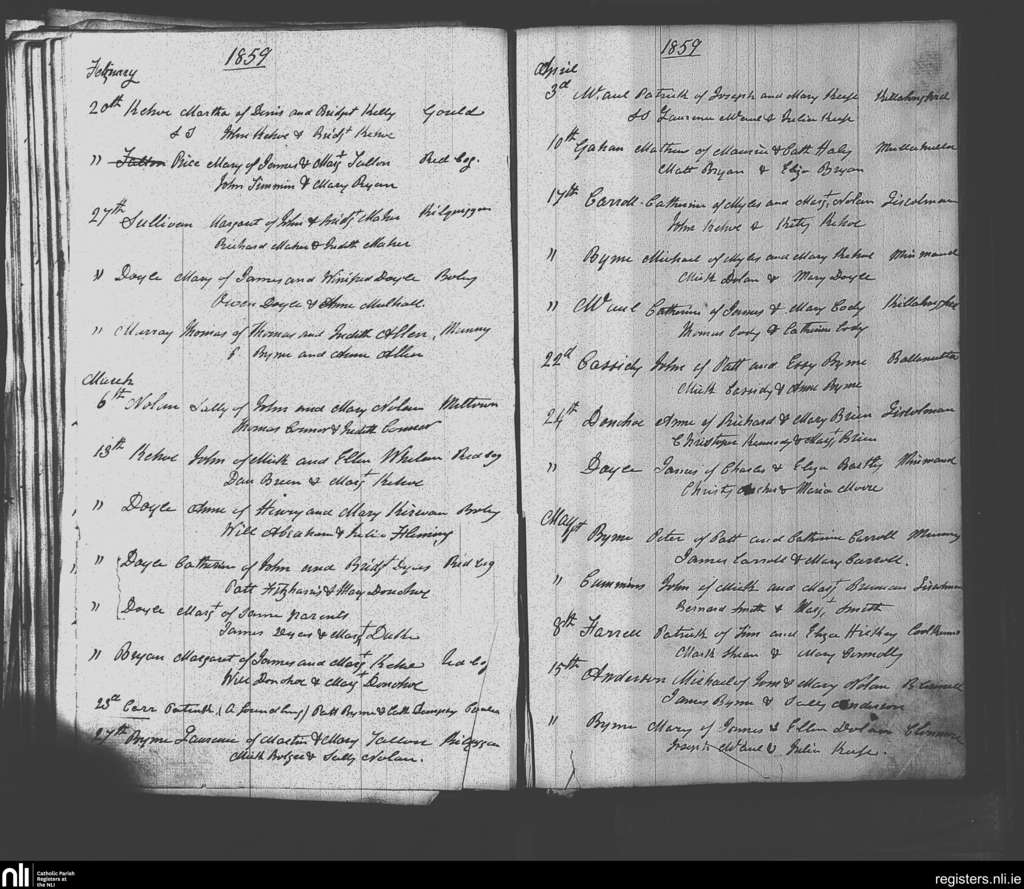 1859
February
20th Kehoe Martha of Denis and Bridget Kelly Gould
& S John Kehoe & Bridgt Kehoe
" Talton Price Mary of James & Margt Talton Red Bog.
John Timmin & Mary Ryan
27th Sullivan Margaret of John & Bridgt Maher
Richard Maher & Judith Maher
" Doyle Mary of James and Winifred Doyle Boley
Owen Doyle & Anne Mulhall
" Murray Thomas of Thomas and Judith Allen, Munny
Byrne and Anne Allen
March
6th Nolan Sally of John and Mary Nolan Miltown
Thomas Connor & Judith Connor
13th Kehoe John of Mick and Ellen Whelan Red Bog
Dan Breen & Margt Kehoe
" Doyle Anne of Henry and Mary Kirwan Boley
Will Abraham & Julia Fleming
" Doyle Catherine of John and Bridgt Dyas Red Bog
Patt Fitzharris & Mary Donohoe
" Doyle Margt of Same parents
James Dyas & Margt
" Bryan Margaret of James and Margt Kehoe Red Bog
Will Donohoe & Margt Donohoe
25th Carr Patrick, (A foundling) Patt Byrne & Cath Dempsey
27th Byrne Laurence of Martin & Mary Tallon
Mick Bolger & Sally Nolan.
1859
April
3d McCaul Patrick of Joseph and Mary Keefe
& S Laurence McCaul & Julia Keefe
10th Gahan Mathew of Maurice & Cath Haly
Matt Bryan & Eliza Bryan
17th Carroll Catherine of Myles and Margt Nolan Liscolman
John Kehoe & Kitty Kehoe
" Byrne Michael of Myles and Mary Kehoe Minmaud
Mick Dolan & Mary Doyle
" McCaul Catherine of James & Mary Cody
Thomas Cody & Catherine Cody
22d Cassidy John of Patt and Essy Byrne
Mick Cassidy & Anne Byrne
24th Donohoe Anne of Richard & Mary Brien Liscolman
Christopr Kennedy & Margt Brien
" Doyle James of Charles & Eliza Bartly Minmaud
Christy & Maria Moore
May
1st Byrne Peter of Patt and Catherine Carroll Munny
James Carroll & Mary Carroll.
" Cummins John of Mick and Margt Brennan Liscolman
Bernard Smith & Mary Smith
8th Farrell Patrick of Tim and Eliza Hickey
Mark Shean & Mary Connolly
15th Anderson Michael of Tom & Mary Nolan
James Byrne & Sally Anderson
" Byrne Mary of James & Ellen Dolan Clonmore
Joseph McCaul & Julia Keefe.
nli
Catholic Parish
Registers at
the NLI
registers.nli.ie